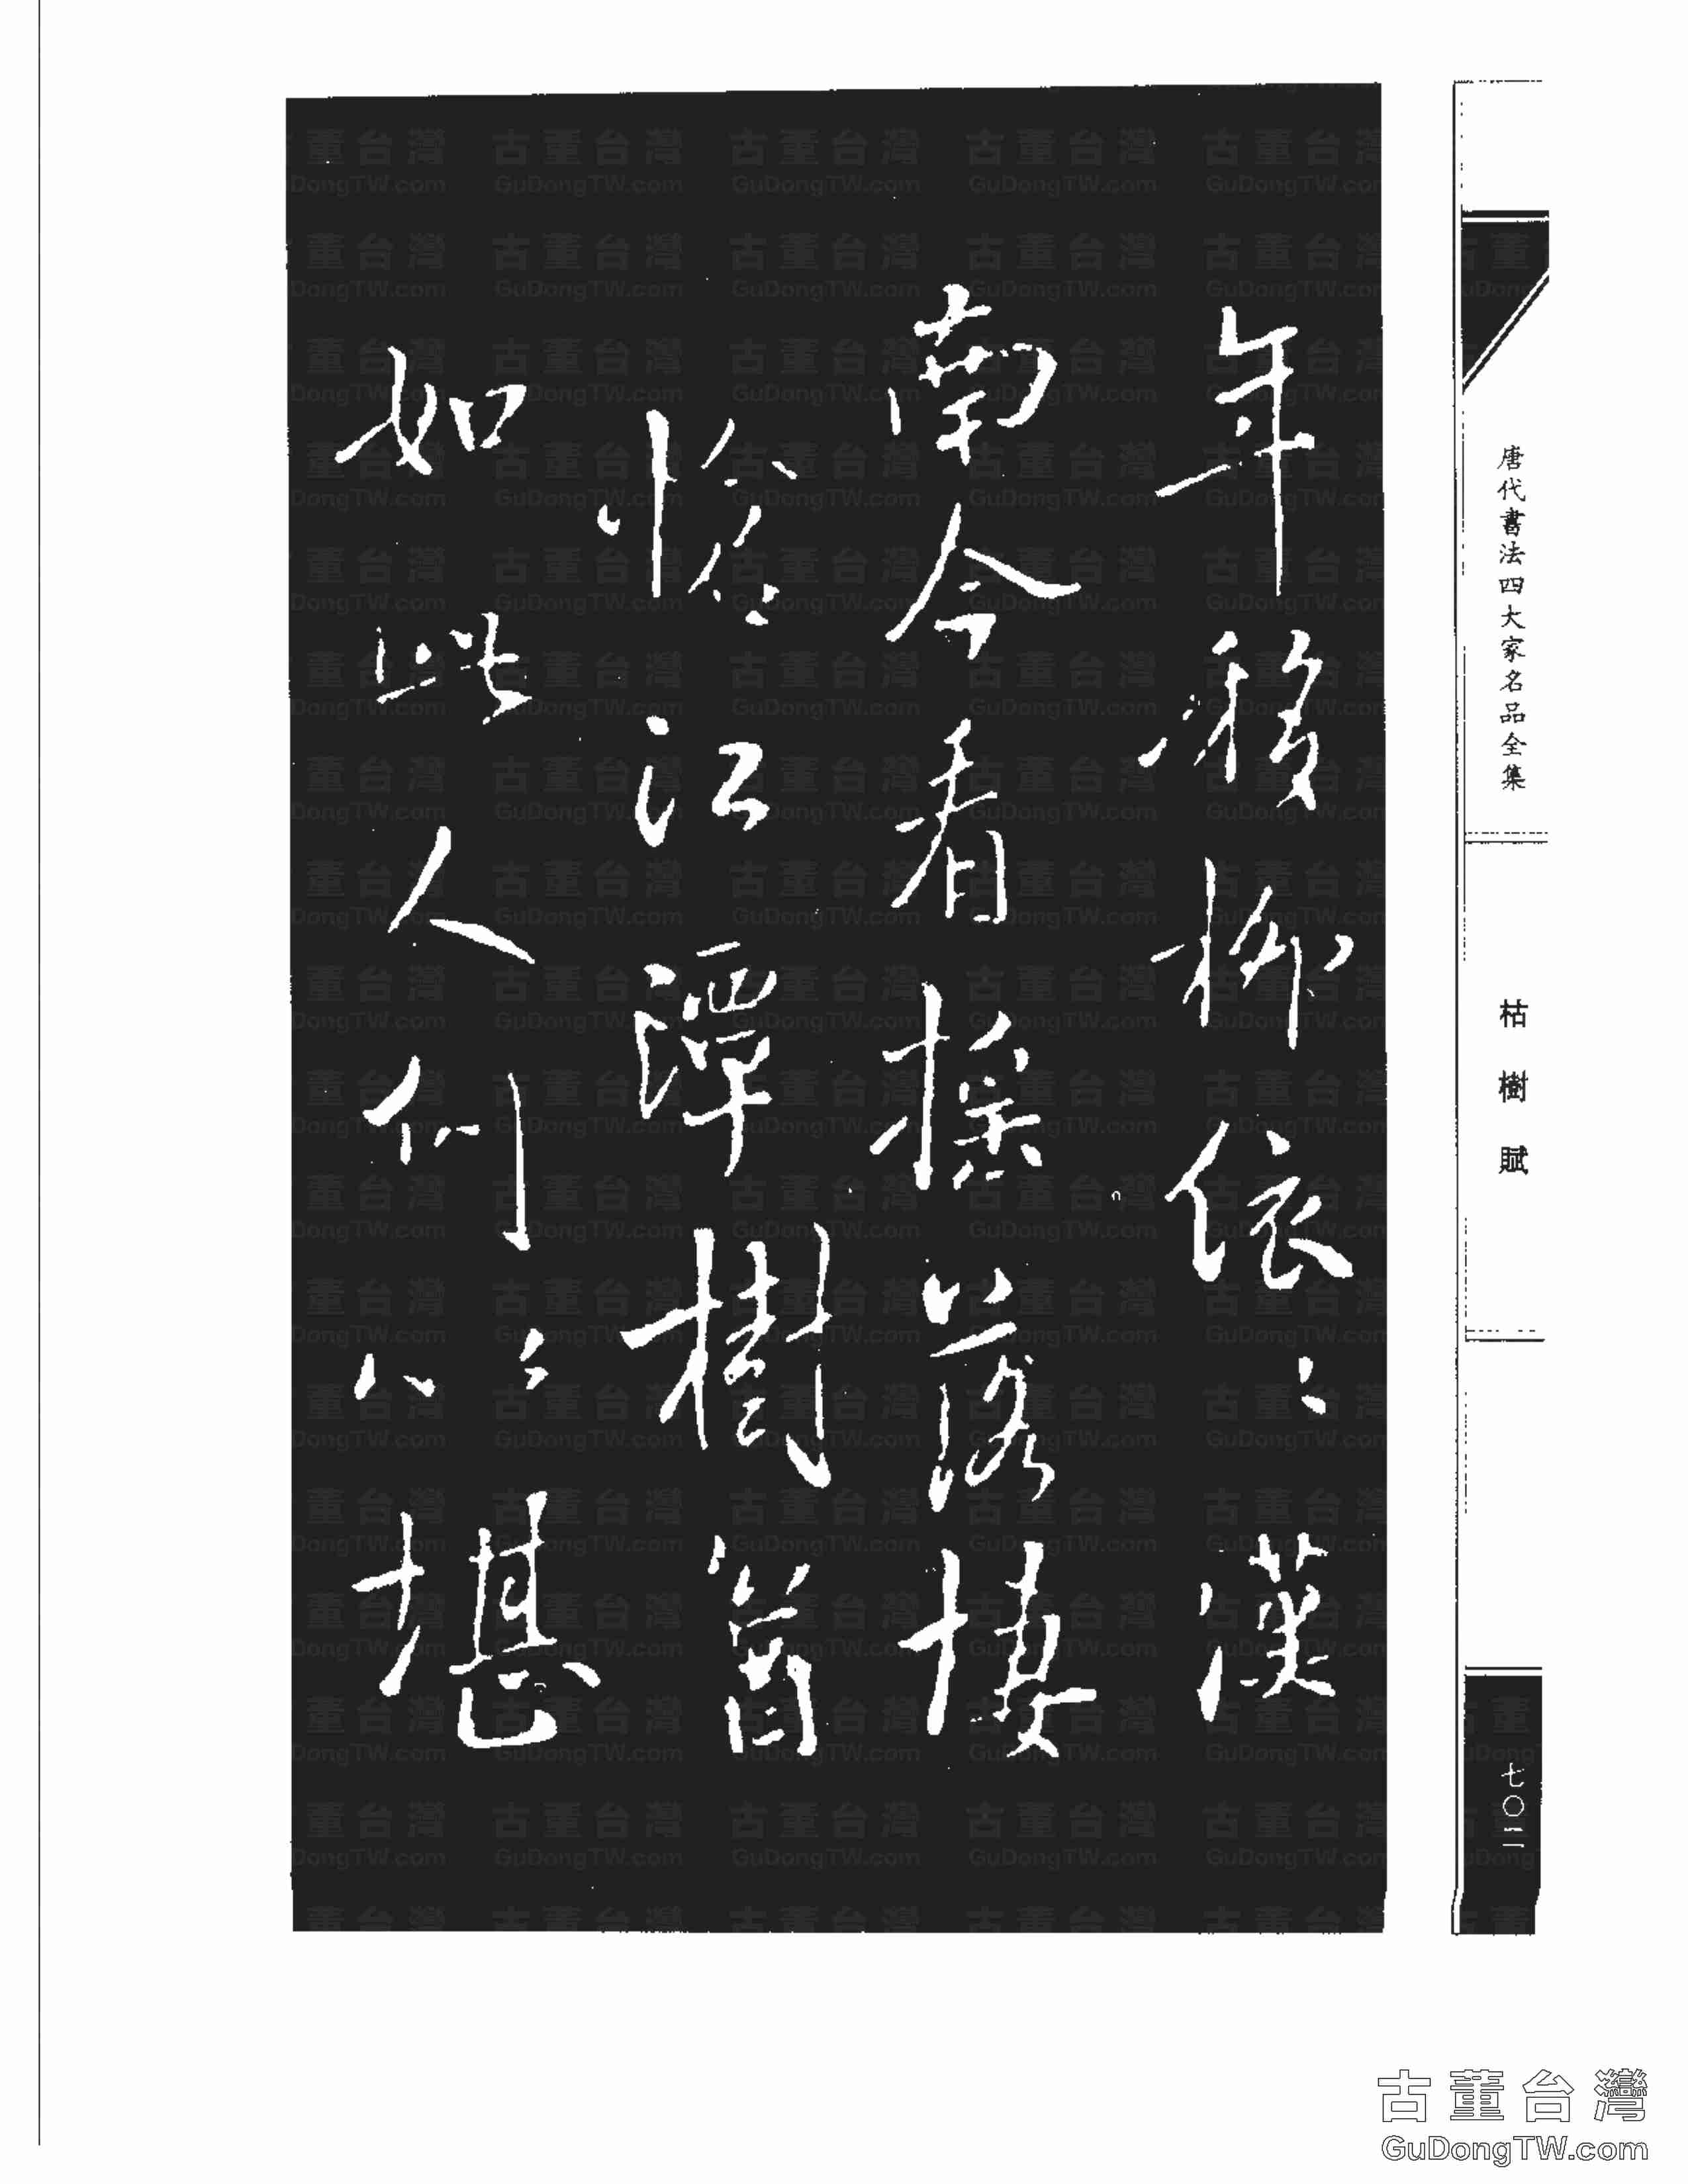 唐代書法四大家名品全集
枯樹賦
七〇二
年移柳依〻漢
南今看搖落悽
愴江潭樹猶
如此人何以堪
古董台灣
GuDongTW.com